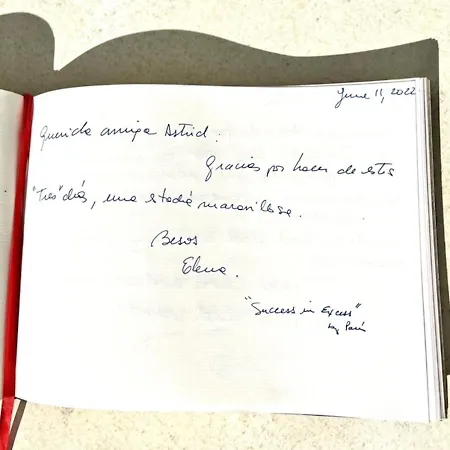 June 11, 2022
Querida amiga Astrid:
Gracias por hacer de estos
"tres" días, una estadía maravillosa.
Besos
Elena.
"Success in Excess"
by